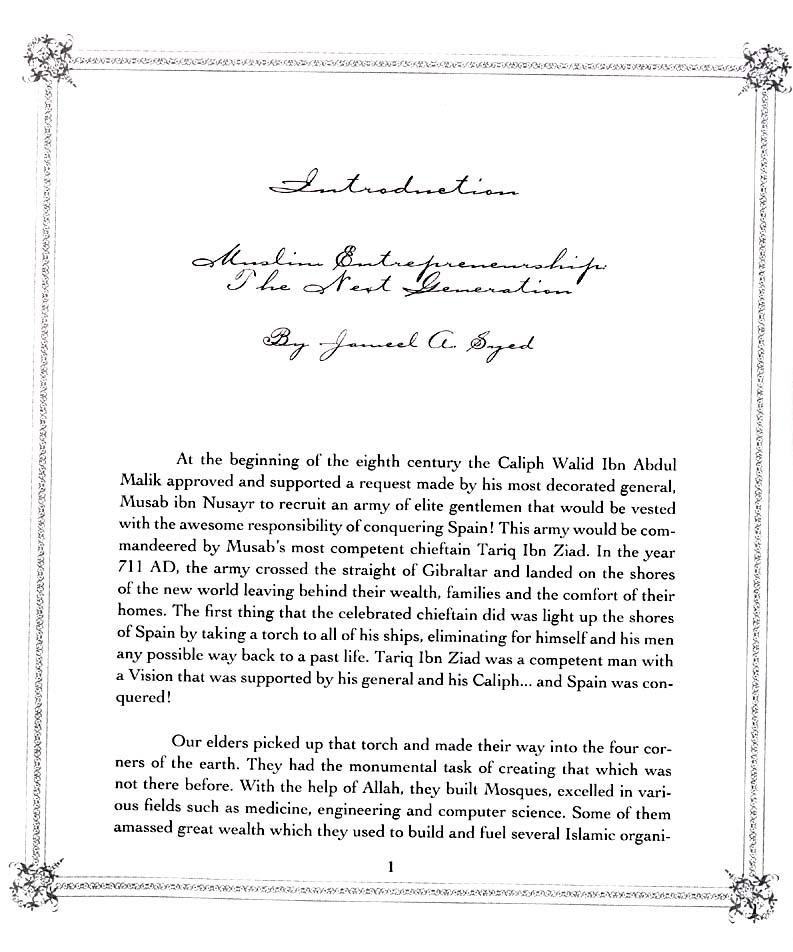 Introduction
Muslim Entrepreneurship:
The Next Generation
By Jameel A. Syed
At the beginning of the eighth century the Caliph Walid Ibn Abdul
Malik approved and supported a request made by his most decorated general,
Musab ibn Nusayr to recruit an army of elite gentlemen that would be vested
with the awesome responsibility of conquering Spain! This army would be com-
mandeered by Musab's most competent chieftain Tariq Ibn Ziad. In the year
711 AD, the army crossed the straight of Gibraltar and landed on the shores
of the new world leaving behind their wealth, families and the comfort of their
homes. The first thing that the celebrated chieftain did was light up the shores
of Spain by taking a torch to all of his ships, eliminating for himself and his men
any possible way back to a past life. Tariq Ibn Ziad was a competent man with
a Vision that was supported by his general and his Caliph... and Spain was con-
quered!
Our elders picked up that torch and made their way into the four cor-
ners of the earth. They had the monumental task of creating that which was
not there before. With the help of Allah, they built Mosques, excelled in vari-
ous fields such as medicine, engineering and computer science. Some of them
amassed great wealth which they used to build and fuel several Islamic organi-
1